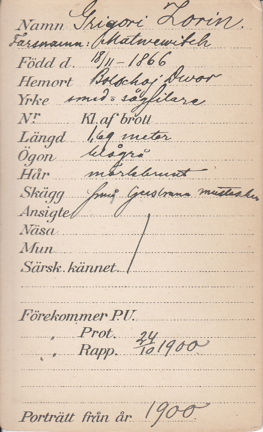 Namn Grigori Zorin.
Farsnamn: Matwewitch
Född d. 18/11 – 1866
Hemort Bolschoj Dwor
Yrke smed: sågfilare
Nr Kl. af brott
Längd 1,69 meter
Ögon blågrå
Hår mörkbrunt
Skägg små ljusbruna mustascher
Ansigte
Näsa
Mun
Särsk. kännet.
Förekommer P.U.
" Prot. 24/10 1900
" Rapp.
Porträtt från år 1900